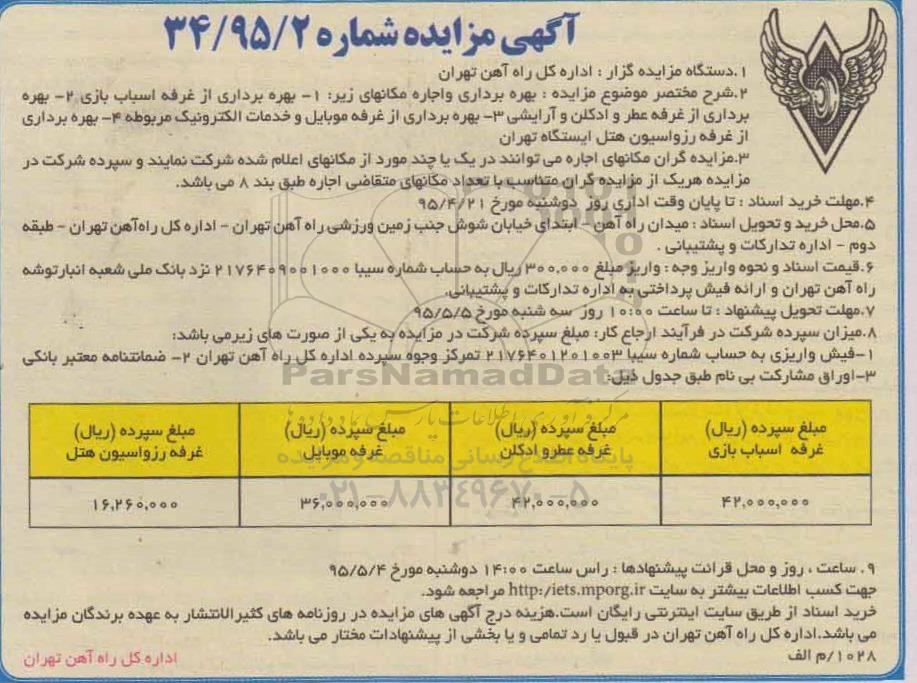 آگهی مزایده شماره ۳۴/۹۵/۲
۱.دستگاه مزایده گزار : اداره کل راه آهن تهران
۲.شرح مختصر موضوع مزایده : بهره برداری واجاره مکانهای زیر: ۱- بهره برداری از غرفه اسباب بازی ۲- بهره
برداری از غرفه عطر و ادکلن و آرایشی ۳- بهره برداری از غرفه موبایل و خدمات الکترونیک مربوطه ۴- بهره برداری
از غرفه رزواسیون هتل ایستگاه تهران
۳.مزایده گران مکانهای اجاره می توانند در یک یا چند مورد از مکانهای اعلام شده شرکت نمایند و سپرده شرکت در
مزایده هریک از مزایده گران متناسب با تعداد مکانهای متقاضی اجاره طبق بند ۸ می باشد.
۴.مهلت خرید اسناد : تا پایان وقت اداری روز دوشنبه مورخ ۹۵/۴/۲۱
۵.محل خرید و تحویل اسناد : میدان راه آهن - ابتدای خیابان شوش جنب زمین ورزشی راه آهن تهران - اداره کل راه‌آهن تهران - طبقه
دوم - اداره تدارکات و پشتیبانی .
۶.قیمت اسناد و نحوه واریز وجه : واریز مبلغ ۳۰۰.۰۰۰ ریال به حساب شماره سیبا ۲۱۷۶۴۰۹۰۰۱۰۰۰ نزد بانک ملی شعبه انبارتوشه
راه آهن تهران و ارائه فیش پرداختی به اداره تدارکات و پشتیبانی.
۷.مهلت تحویل پیشنهاد : تا ساعت ۱۰:۰۰ روز سه شنبه مورخ ۹۵/۵/۵
۸.میزان سپرده شرکت در فرآیند ارجاع کار: مبلغ سپرده شرکت در مزایده به یکی از صورت های زیرمی باشد:
۱-فیش واریزی به حساب شماره سیبا ۲۱۷۶۴۰۱۲۰۱۰۰۳ تمرکز وجوه سپرده اداره کل راه آهن تهران ۲- ضمانتنامه معتبر بانکی
۳-اوراق مشارکت بی نام طبق جدول ذیل:
ParsNamadData
مرکز فرآوری اطلاعات پارس نماد داده ها
مبلغ سپرده (ریال) مبلغ سپرده (ریال) مبلغ سپرده (ریال) مبلغ سپرده (ریال)
غرفه اسباب بازی غرفه عطرو ادکلن غرفه موبایل غرفه رزواسیون هتل
پایگاه اطلاع رسانی مناقصه و مزایده
۴۲,۰۰۰,۰۰۰ ۴۲,۰۰۰,۰۰۰ ۳۶,۰۰۰,۰۰۰ ۱۶,۲۶۰,۰۰۰
۰۲۱-۸۸۳۴۹۶۷۰-۵
۹. ساعت ، روز و محل قرائت پیشنهادها : راس ساعت ۱۴:۰۰ دوشنبه مورخ ۹۵/۵/۴
جهت کسب اطلاعات بیشتر به سایت http:/iets.mporg.ir مراجعه شود.
خرید اسناد از طریق سایت اینترنتی رایگان است.هزینه درج آگهی های مزایده در روزنامه های کثیرالانتشار به عهده برندگان مزایده
می باشد.اداره کل راه آهن تهران در قبول یا رد تمامی و یا بخشی از پیشنهادات مختار می باشد.
۱۰۲۸/م الف
اداره کل راه آهن تهران